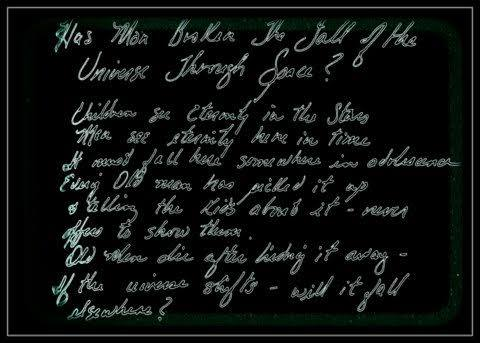 Has Man Broken The Fall of the
Universe Through Space?
Children see Eternity in the Stars
Men see eternity here in Time
It must fall here somewhere in adolescence
Every Old man has picked it up
& telling the kids about it - never
offers to show them.
Old men die after hiding it away -
If the universe shifts - will it fall
elsewhere?